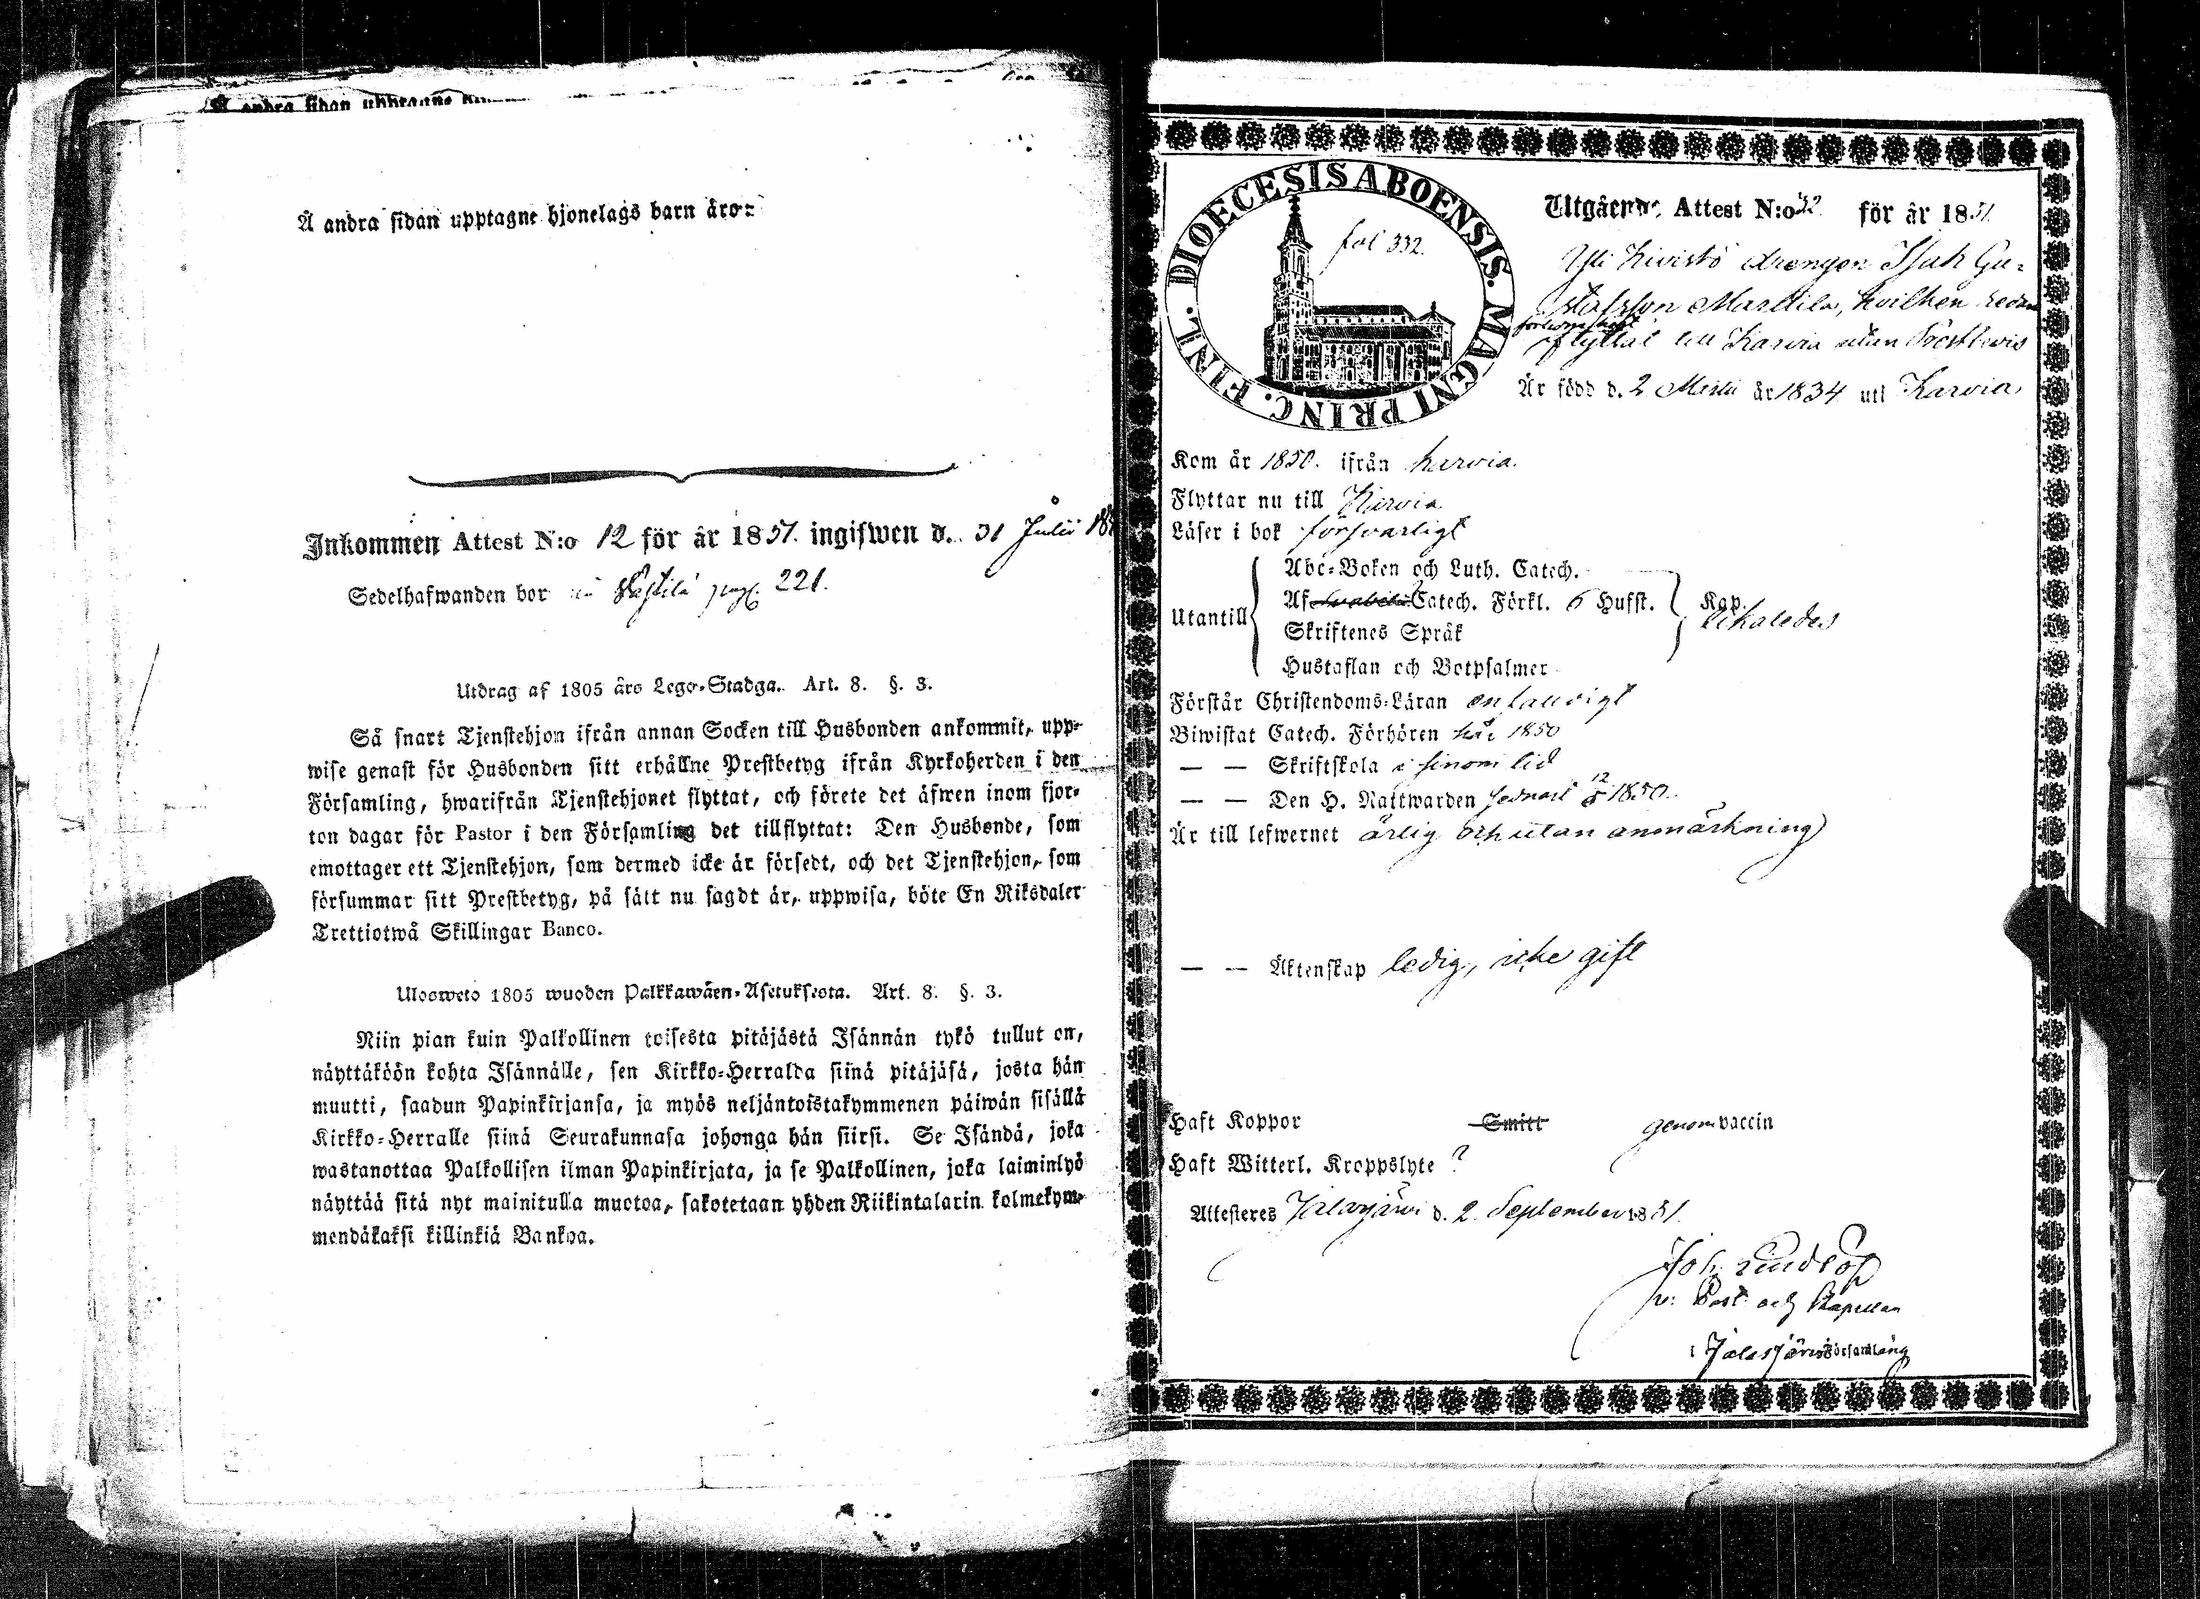 Å andra sidan upptagne hjonelags barn äro:
Inkommen Attest N:o 12 för år 1851. ingifwen d. 31 Julii
Sedelhafwanden bor pag. 221.
Utdrag af 1805 års Lego-Stadga. Art. 8. §. 3.
Så snart Tjenstehjon ifrån annan Socken till Husbonden ankommit, upp-
wise genast för Husbonden sitt erhållne Prestbetyg ifrån Kyrkoherden i den
Församling, hwarifrån Tjenstehjonet flyttat, och förete det äfwen inom fjor-
ton dagar för Pastor i den Församling det tillflyttat: Den Husbonde, som
emottager ett Tjenstehjon, som dermed icke är försedt, och det Tjenstehjon, som
försummar sitt Prestbetyg, på sätt nu sagdt är, uppwisa, böte En Riksdaler
Trettiotwå Skillingar Banco.
Ulosweto 1805 wuoden Palkkawäen-Asetuksesta. Art. 8. §. 3.
Niin pian kuin Palkollinen toisesta pitäjästä Isännän tykö tullut on,
näyttäköön kohta Isännälle, sen Kirkko-Herralda siinä pitäjäsä, josta hän
muutti, saadun Papinkirjansa, ja myös neljäntoistakymmenen päiwän sisällä
Kirkko-Herralle siinä Seurakunnasa johonga hän siirsi. Se Isändä, joka
wastanottaa Palkollisen ilman Papinkirjata, ja se Palkollinen, joka laiminlyö
näyttää sitä nyt mainitulla muotoa, sakotetaan yhden Riikintalarin kolmekym-
mendäkaksi killinkiä Bankoa.
DIOECESIS ABOENSIS. MAGNI PRINC. FINL.
fol 332.
Utgående Attest N:o 52 för år 1851.
Yli Kivistö drengen Isak Gu-
stafsson Marttila, hvilken redan
flyttat till Karvia utan Prestbevis
Är född d. 2 Martii år 1834 uti Karvia
Kom år 1850. ifrån Karvia.
Flyttar nu till Karvia
Läser i bok försvarligt
Utantill
Abc-Boken och Luth. Catech.
Af Svebelii Catech. Förkl. 6 Hufst. Kap.
likaledes
Skriftenes Språk
Hustaflan och Botpsalmer
Förstår Christendoms-Läran enfalldigt
Biwistat Catech. Förhören här 1850
— — Skriftskola i sinom tid
— — Den H. Nattwarden sednast 12/5 1850.
Är till lefwernet ärlig och utan anmärkning
— — Äktenskap ledig, icke gift
Haft Koppor Smitt genom vaccin
Haft Witterl. Kroppslyte ?
Attesteres Jalasjärvi d. 2. September 1851.
Joh.
v: Past: och Kapellan
i Jalasjärvi Församling